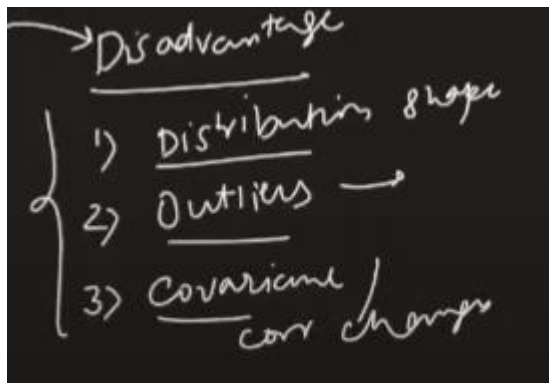 Disadvantage
1) Distribution shape
2) Outliers
3) Covariance /
corr changes